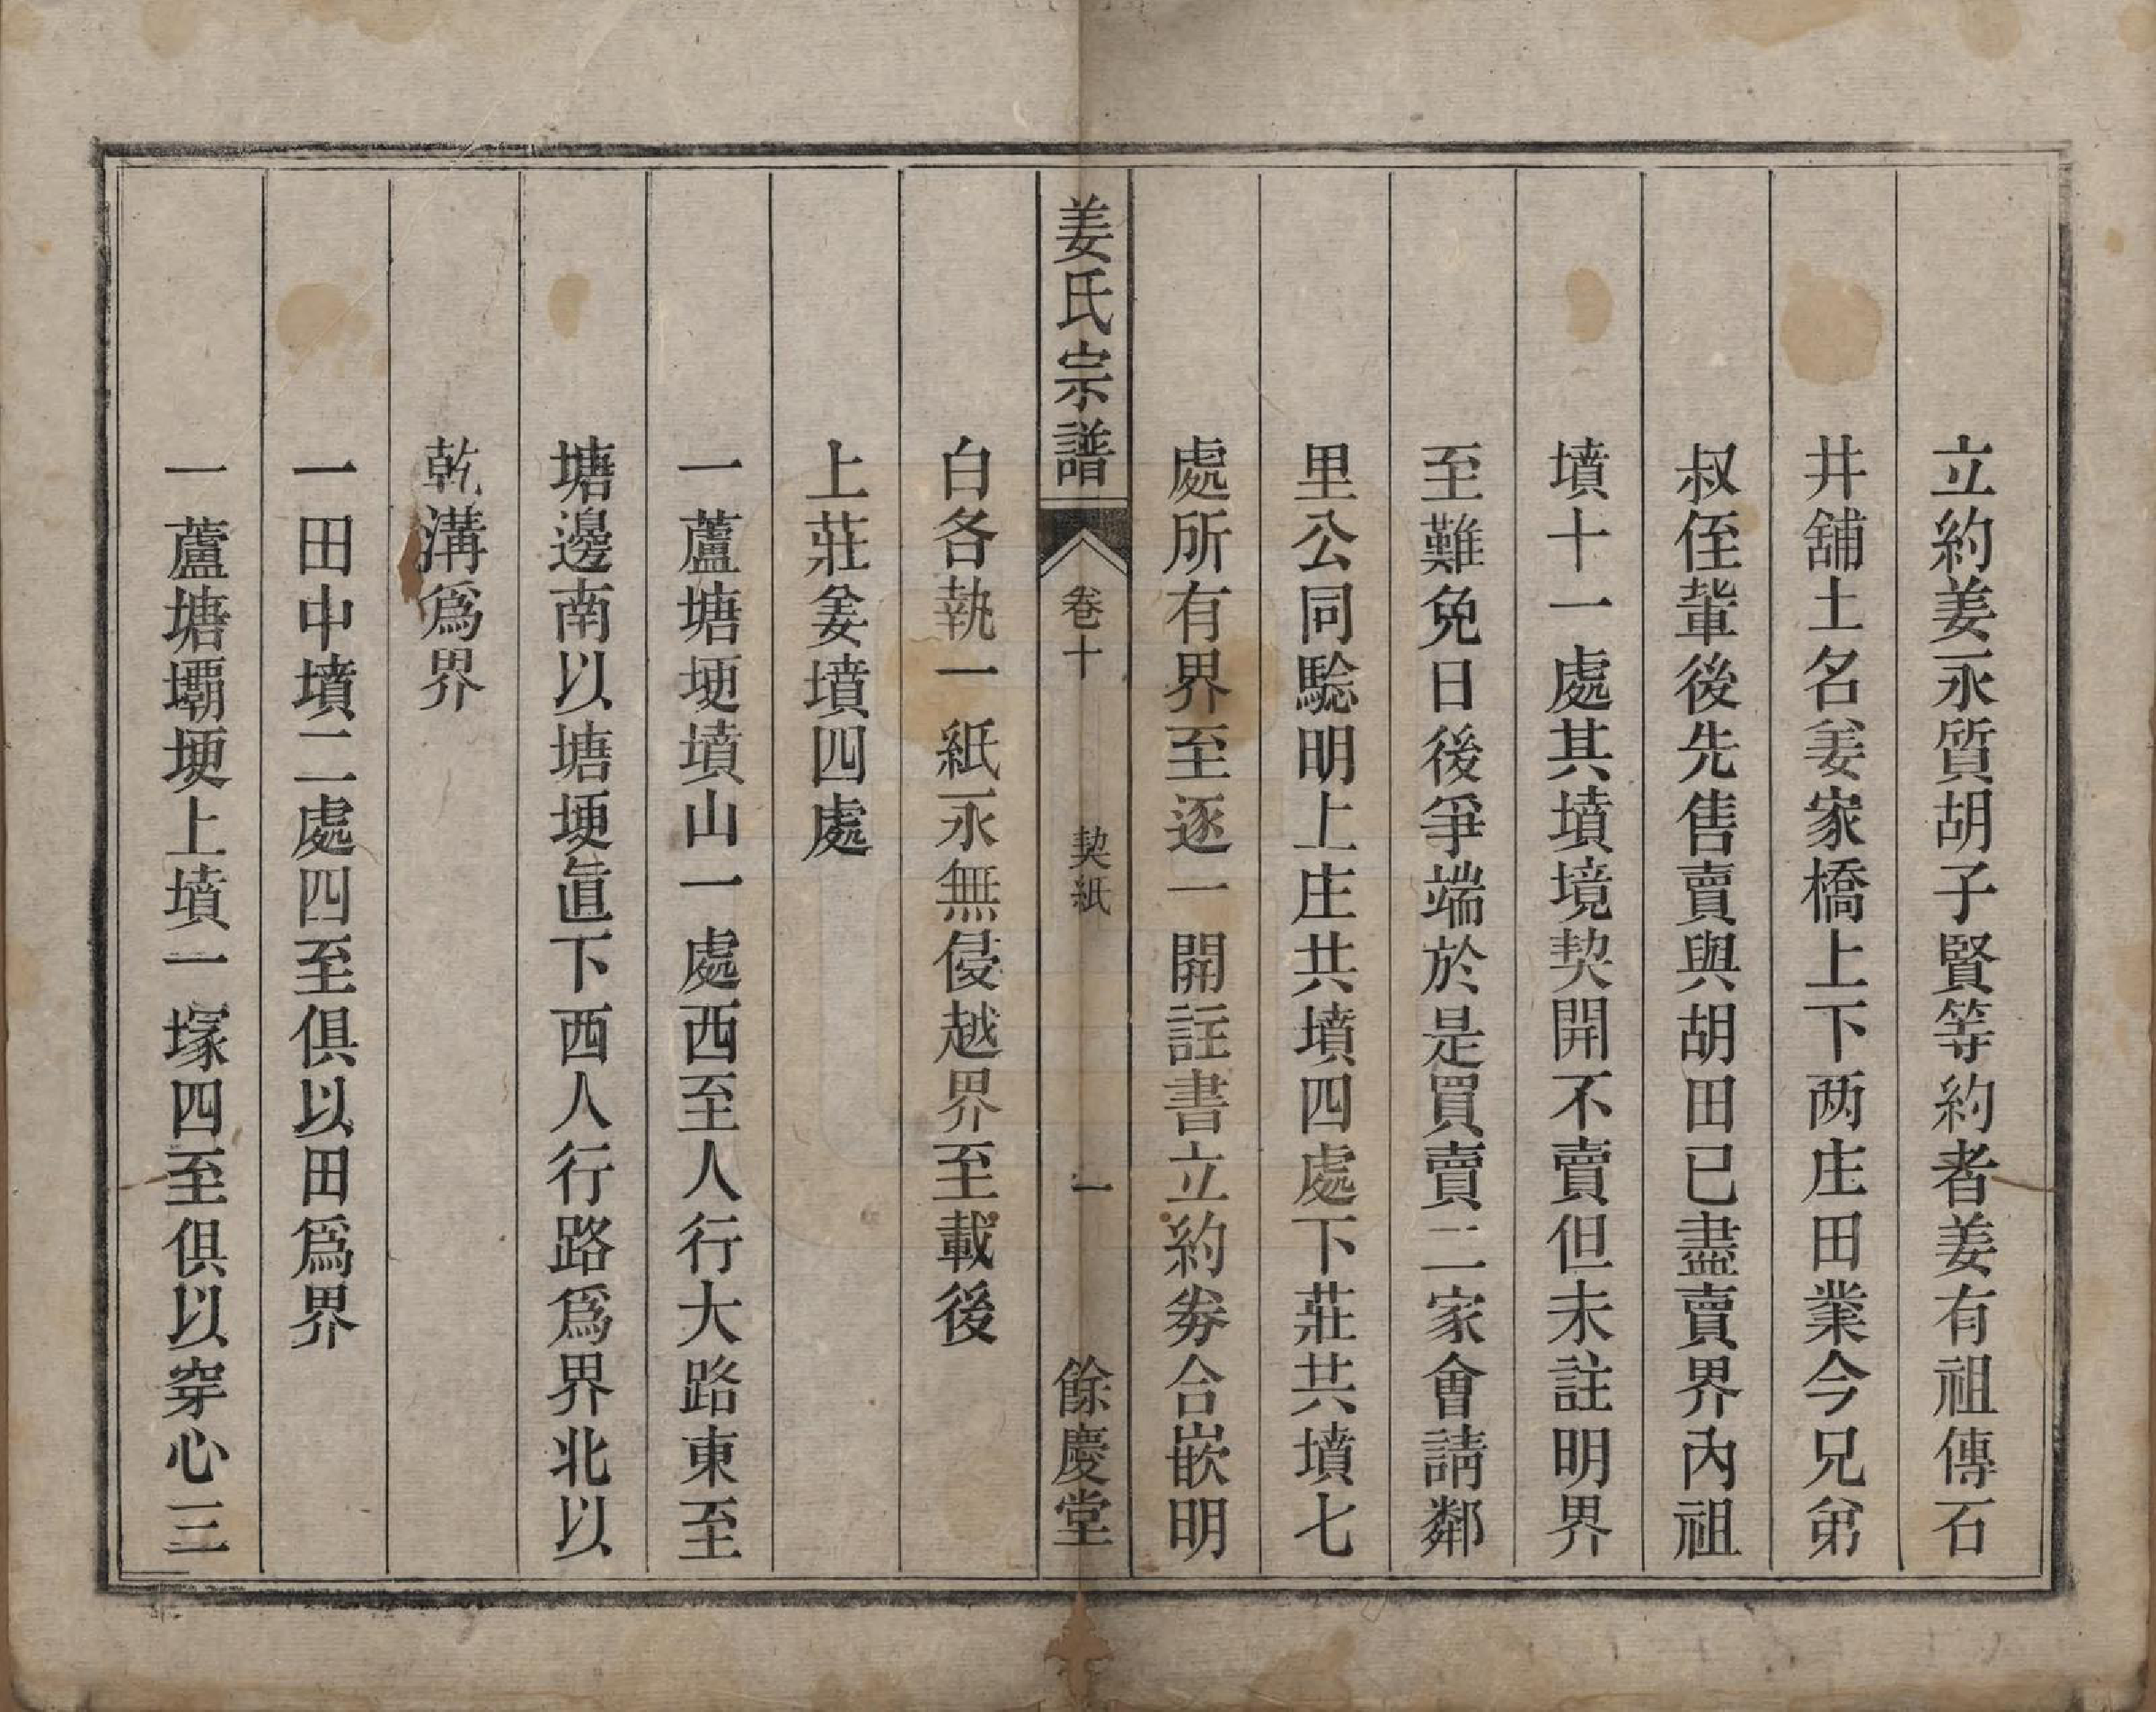 立約姜永質胡子賢等約者姜有祖傳石
井舖土名姜家橋上下两庄田業今兄弟
叔侄輩後先售賣與胡田已盡賣界內祖
墳十一處其墳境契開不賣但未註明界
至難免日後爭端於是買賣二家會請鄰
里公同驗明上庄共墳四處下莊共墳七
處所有界至逐一開註書立約劵合嵌明
姜氏宗譜
卷十
契紙
一
餘慶堂
白各執一紙永無侵越界至載後
上莊姜墳四處
一蘆塘埂墳山一處西至人行大路東至
塘邊南以塘埂直下西人行路爲界北以
乾溝爲界
一田中墳二處四至俱以田爲界
一蘆塘壩埂上墳一塚四至俱以穿心三